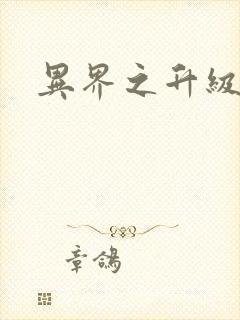 異界之升級
章鴿